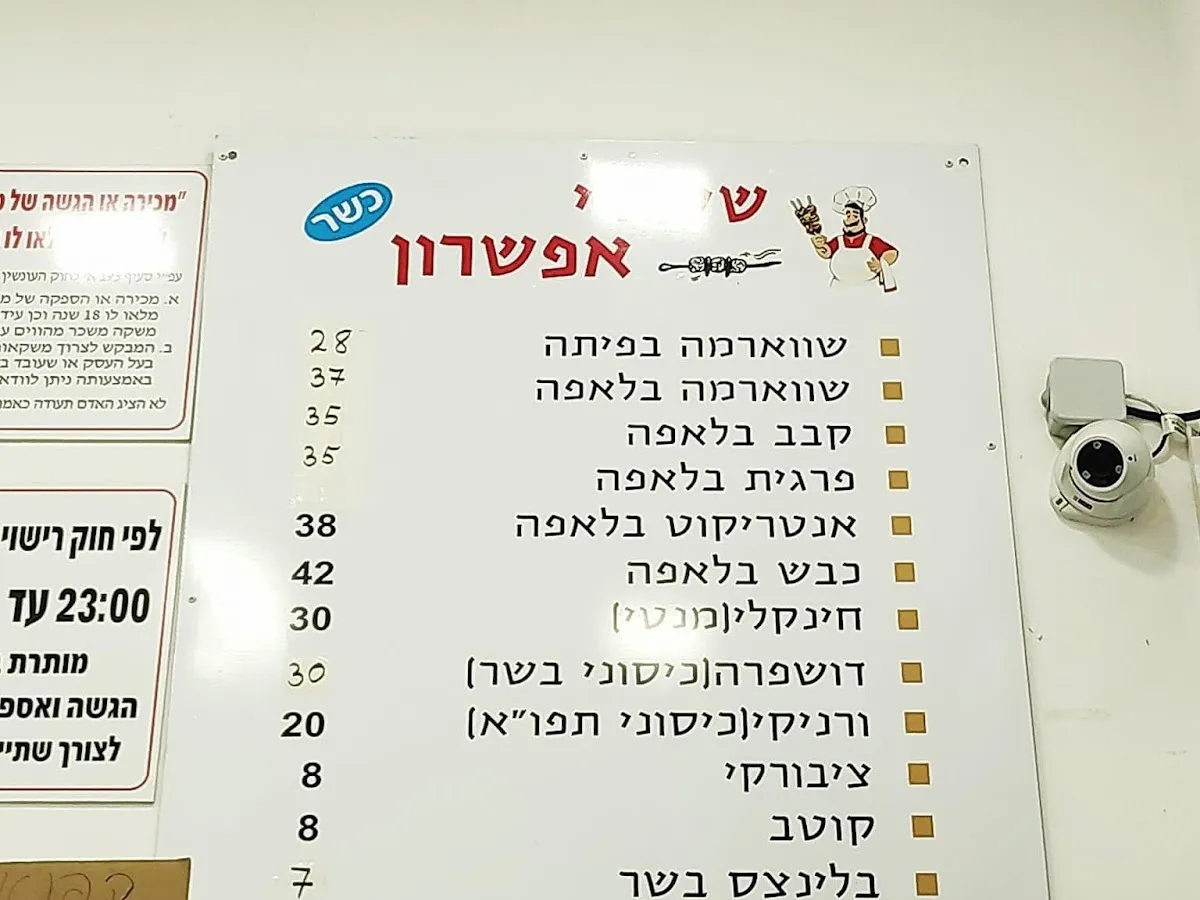 כשר
אפשרון
שווארמה בפיתה 28
שווארמה בלאפה 37
קבב בלאפה 35
פרגית בלאפה 35
אנטריקוט בלאפה 38
כבש בלאפה 42
חינקלי(מנטי) 30
דושפרה(כיסוני בשר) 30
ורניקי(כיסוני תפו"א) 20
ציבורקי 8
קוטב 8
בלינצס בשר 7
"מכירה או הגשה של
לאו לו
עפ"י סעיף חוק העונשין
א. מכירה או הספקה של
מלאו לו 18 שנה וכן
משקה משכר מהווים
ב. המבקש לצרוך משקאות
בעל העסק או שעובד
באמצעותה ניתן לוודא
לא הציג האדם תעודה
לפי חוק רישוי
23:00 עד
מותרת
הגשה
לצורך